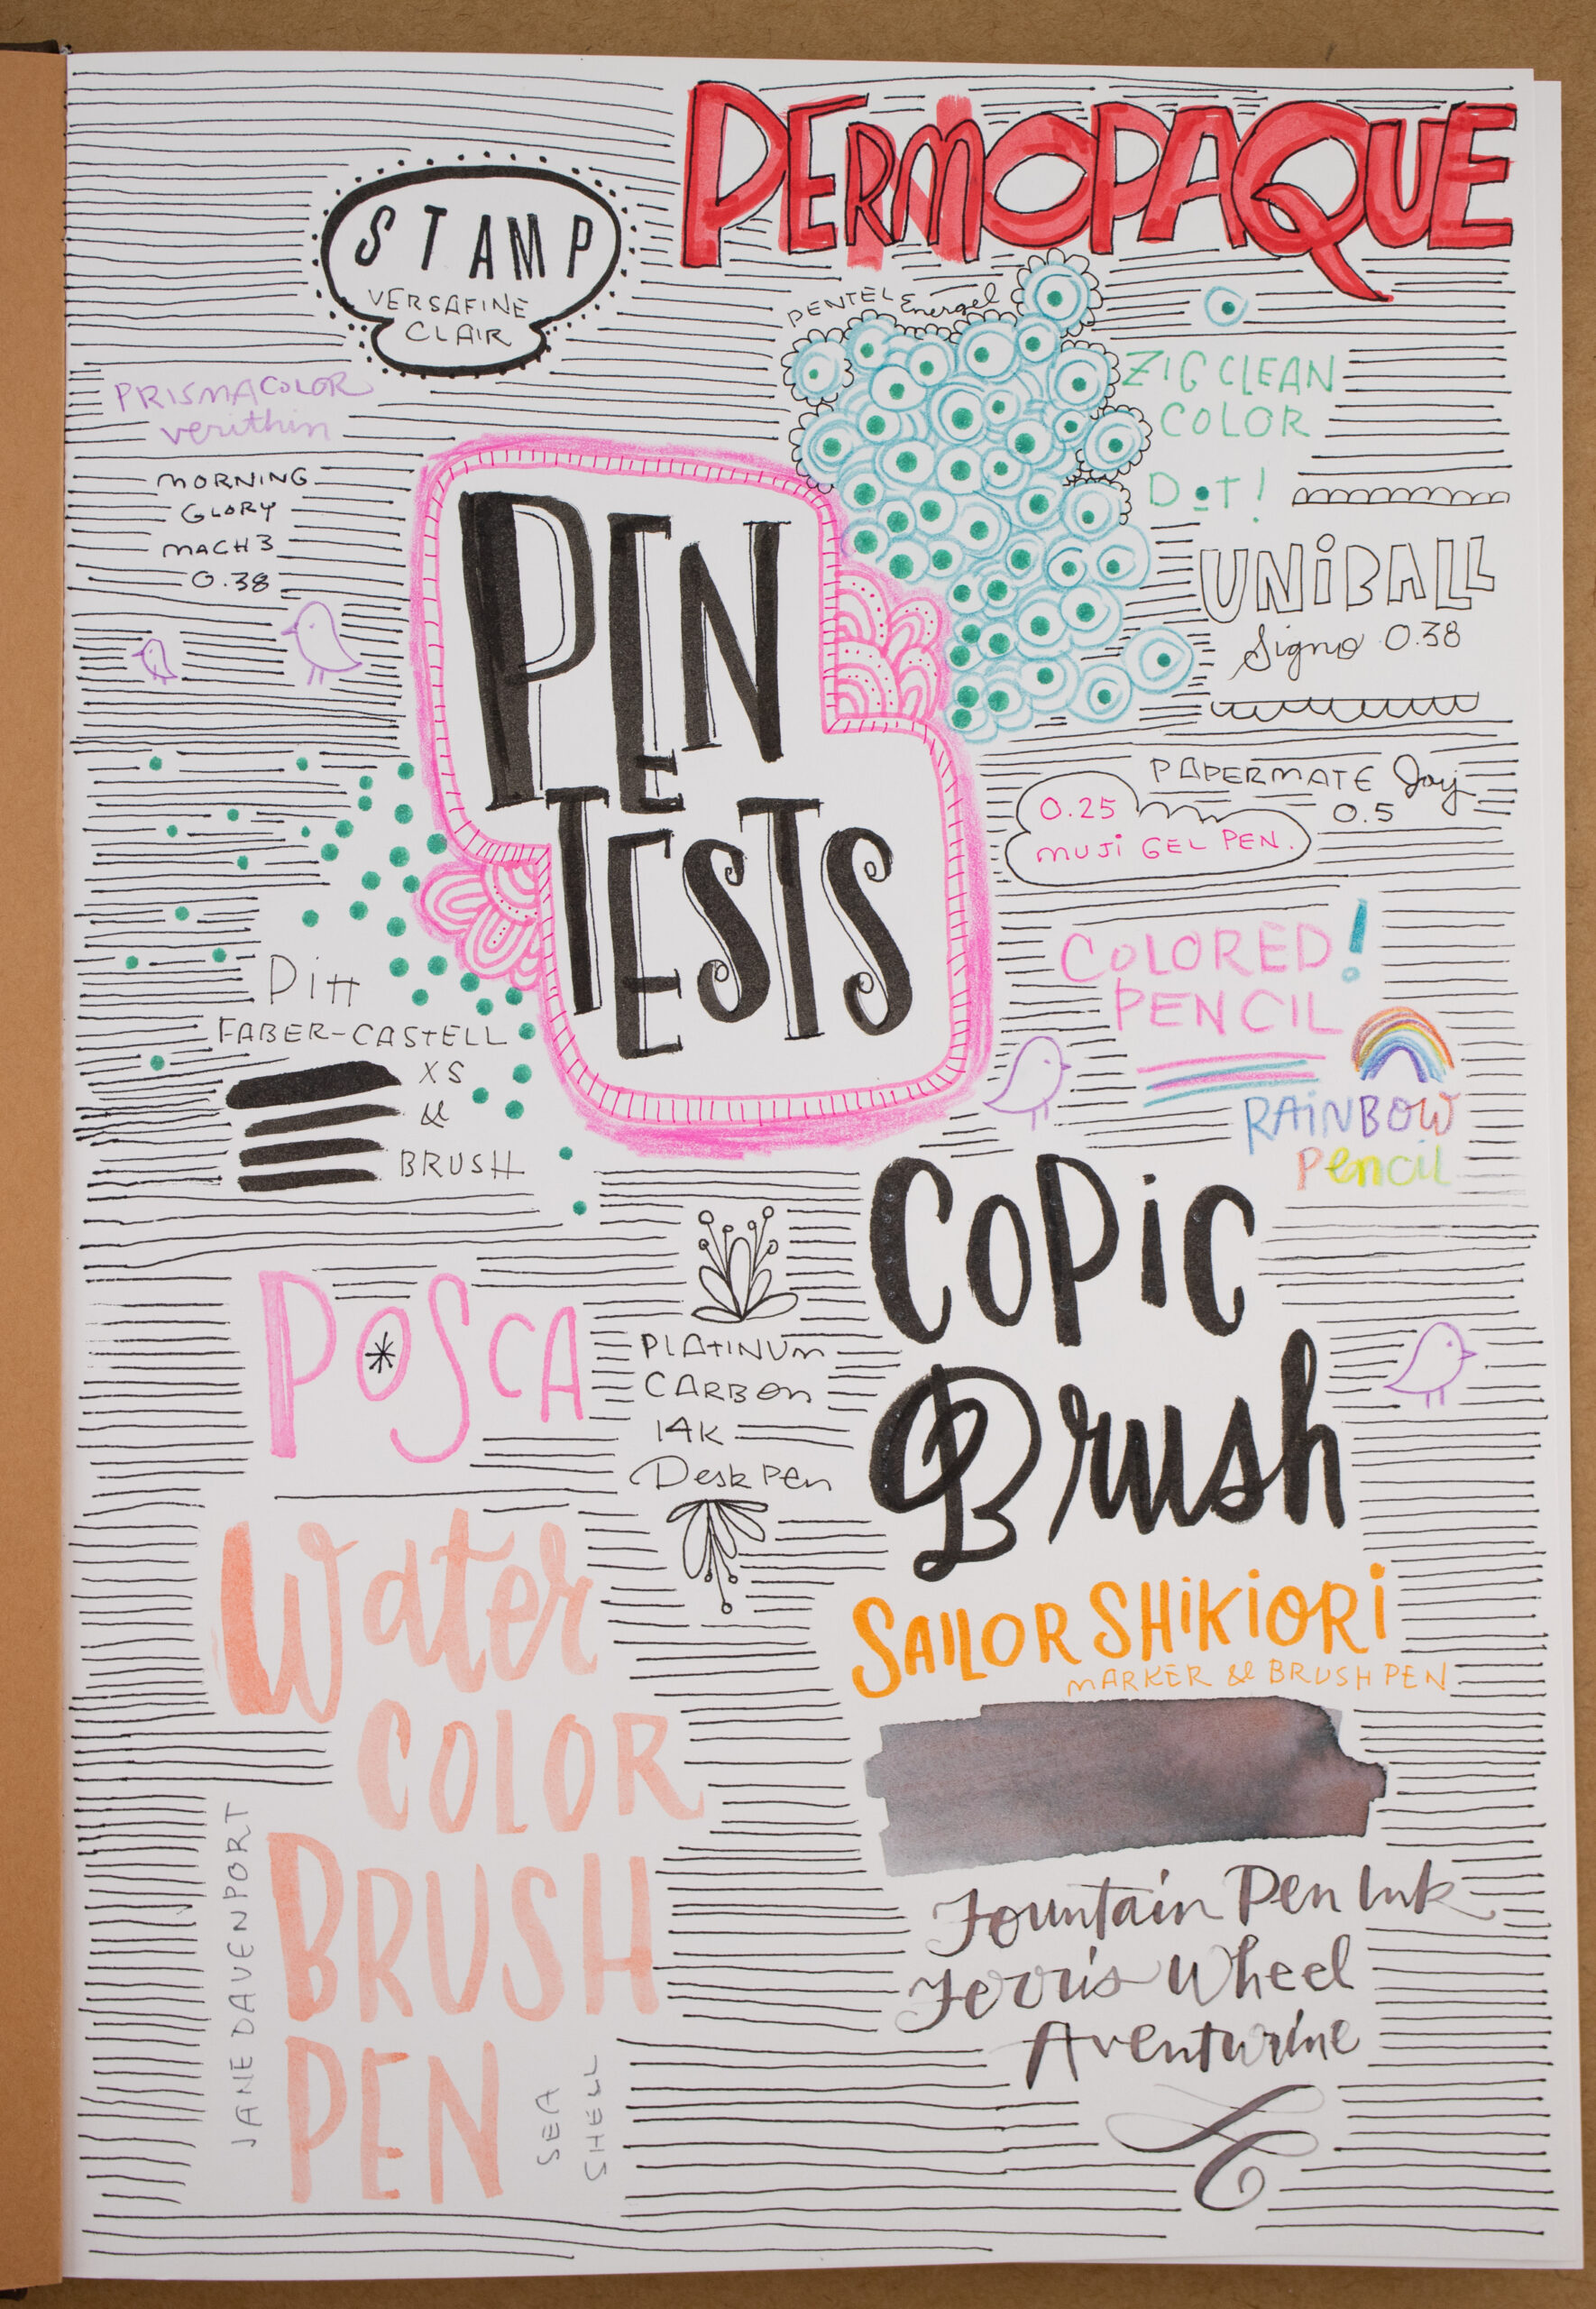 PERMOPAQUE
STAMP
VERSAFINE
CLAIR
PENTEL Energel
PRISMACOLOR
verithin
ZIG CLEAN
COLOR
DOT!
MORNING
GLORY
MACH 3
0.38
PEN
TESTS
UNIBALL
Signo 0.38
PAPERMATE Joy
0.5
0.25
MUJI GEL PEN.
COLORED!
PENCIL
RAINBOW
Pencil
Pitt
FABER-CASTELL
XS
&
BRUSH
COPIC
Brush
POSCA
PLATINUM
CARBON
14K
Desk Pen
SAILOR SHIKIORI
MARKER & BRUSH PEN
Water
COLOR
BRUSH
PEN
JANE DAVENPORT
SEA
SHELL
Fountain Pen Ink
Ferris Wheel
Aventurine